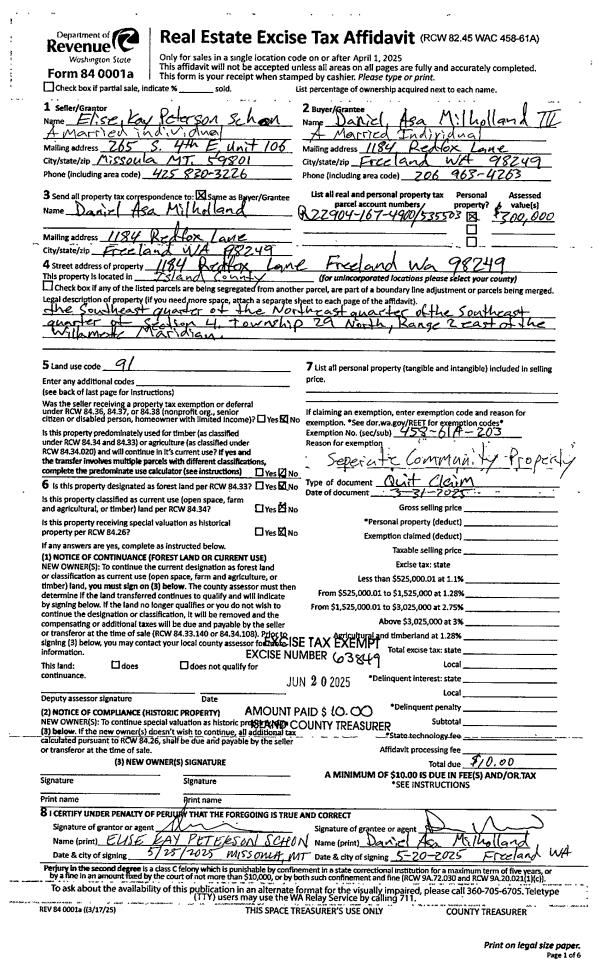 Department of
Revenue
Washington State
Form 84 0001a
Real Estate Excise Tax Affidavit (RCW 82.45 WAC 458-61A)
Only for sales in a single location code on or after April 1, 2025
This affidavit will not be accepted unless all areas on all pages are fully and accurately completed.
This form is your receipt when stamped by cashier. Please type or print.
Check box if partial sale, indicate % sold. List percentage of ownership acquired next to each name.
1 Seller/Grantor
Name Elise Kay Peterson Schon
A married individual
Mailing address 265 S. 4th E Unit 106
City/state/zip Missoula MT. 59801
Phone (including area code) 425 820-3226
2 Buyer/Grantee
Name Daniel Asa Milholland III
A Married Individual
Mailing address 1184 Redfox Lane
City/state/zip Freeland WA 98249
Phone (including area code) 206 963-4263
3 Send all property tax correspondence to: Same as Buyer/Grantee
Name Daniel Asa Milholland
Mailing address 1184 Redfox Lane
City/state/zip Freeland WA 98249
List all real and personal property tax parcel account numbers
Personal property?
Assessed value(s)
R22904-167-4900/535503 $300,000
4 Street address of property 1184 Redfox Lane Freeland Wa 98249
This property is located in Island County (for unincorporated locations please select your county)
Check box if any of the listed parcels are being segregated from another parcel, are part of a boundary line adjustment or parcels being merged.
Legal description of property (if you need more space, attach a separate sheet to each page of the affidavit).
the Southeast quarter of the Northeast quarter of the Southeast
quarter of Section 4, Township 29 North, Range 2 east of the
Willamote Maridian.
5 Land use code 91
Enter any additional codes
(see back of last page for instructions)
Was the seller receiving a property tax exemption or deferral
under RCW 84.36, 84.37, or 84.38 (nonprofit org., senior
citizen or disabled person, homeowner with limited income)? Yes No
Is this property predominately used for timber (as classified
under RCW 84.34 and 84.33) or agriculture (as classified under
RCW 84.34.020) and will continue in it's current use? If yes and
the transfer involves multiple parcels with different classifications,
complete the predominate use calculator (see instructions) Yes No
6 Is this property designated as forest land per RCW 84.33? Yes No
Is this property classified as current use (open space, farm
and agricultural, or timber) land per RCW 84.34? Yes No
Is this property receiving special valuation as historical
property per RCW 84.26? Yes No
If any answers are yes, complete as instructed below.
(1) NOTICE OF CONTINUANCE (FOREST LAND OR CURRENT USE)
NEW OWNER(S): To continue the current designation as forest land
or classification as current use (open space, farm and agriculture, or
timber) land, you must sign on (3) below. The county assessor must then
determine if the land transferred continues to qualify and will indicate
by signing below. If the land no longer qualifies or you do not wish to
continue the designation or classification, it will be removed and the
compensating or additional taxes will be due and payable by the seller
or transferor at the time of sale (RCW 84.33.140 or 84.34.108). Prior to
signing (3) below, you may contact your local county assessor for more
information.
This land: does does not qualify for
continuance.
Deputy assessor signature Date
(2) NOTICE OF COMPLIANCE (HISTORIC PROPERTY)
NEW OWNER(S): To continue special valuation as historic property, sign
(3) below. If the new owner(s) doesn't wish to continue, all additional tax
calculated pursuant to RCW 84.26, shall be due and payable by the seller
or transferor at the time of sale.
(3) NEW OWNER(S) SIGNATURE
Signature Signature
Print name Print name
7 List all personal property (tangible and intangible) included in selling
price.
If claiming an exemption, enter exemption code and reason for
exemption. *See dor.wa.gov/REET for exemption codes*
Exemption No. (sec/sub) 458-61A-203
Reason for exemption
Seperate Community Property
Type of document Quit Claim
Date of document 3-31-2025
Gross selling price
*Personal property (deduct)
Exemption claimed (deduct)
Taxable selling price
Excise tax: state
Less than $525,000.01 at 1.1%
From $525,000.01 to $1,525,000 at 1.28%
From $1,525,000.01 to $3,025,000 at 2.75%
Above $3,025,000 at 3%
Agricultural and timberland at 1.28%
Total excise tax: state
Local
*Delinquent interest: state
Local
*Delinquent penalty
Subtotal
*State technology fee
Affidavit processing fee
Total due $10.00
A MINIMUM OF $10.00 IS DUE IN FEE(S) AND/OR TAX
*SEE INSTRUCTIONS
EXCISE TAX EXEMPT
EXCISE NUMBER 63849
JUN 20 2025
AMOUNT PAID $ 10.00
ISLAND COUNTY TREASURER
8 I CERTIFY UNDER PENALTY OF PERJURY THAT THE FOREGOING IS TRUE AND CORRECT
Signature of grantor or agent
Name (print) ELISE KAY PETERSON SCHON
Date & city of signing 5/25/2025 MISSOULA, MT
Signature of grantee or agent
Name (print) Daniel Asa Milholland
Date & city of signing 5-20-2025 Freeland WA
Perjury in the second degree is a class C felony which is punishable by confinement in a state correctional institution for a maximum term of five years, or
by a fine in an amount fixed by the court of not more than $10,000, or by both such confinement and fine (RCW 9A.72.030 and RCW 9A.20.021(1)(c)).
To ask about the availability of this publication in an alternate format for the visually impaired, please call 360-705-6705. Teletype
(TTY) users may use the WA Relay Service by calling 711.
REV 84 0001a (3/17/25) THIS SPACE TREASURER'S USE ONLY COUNTY TREASURER
Print on legal size paper.
Page 1 of 6